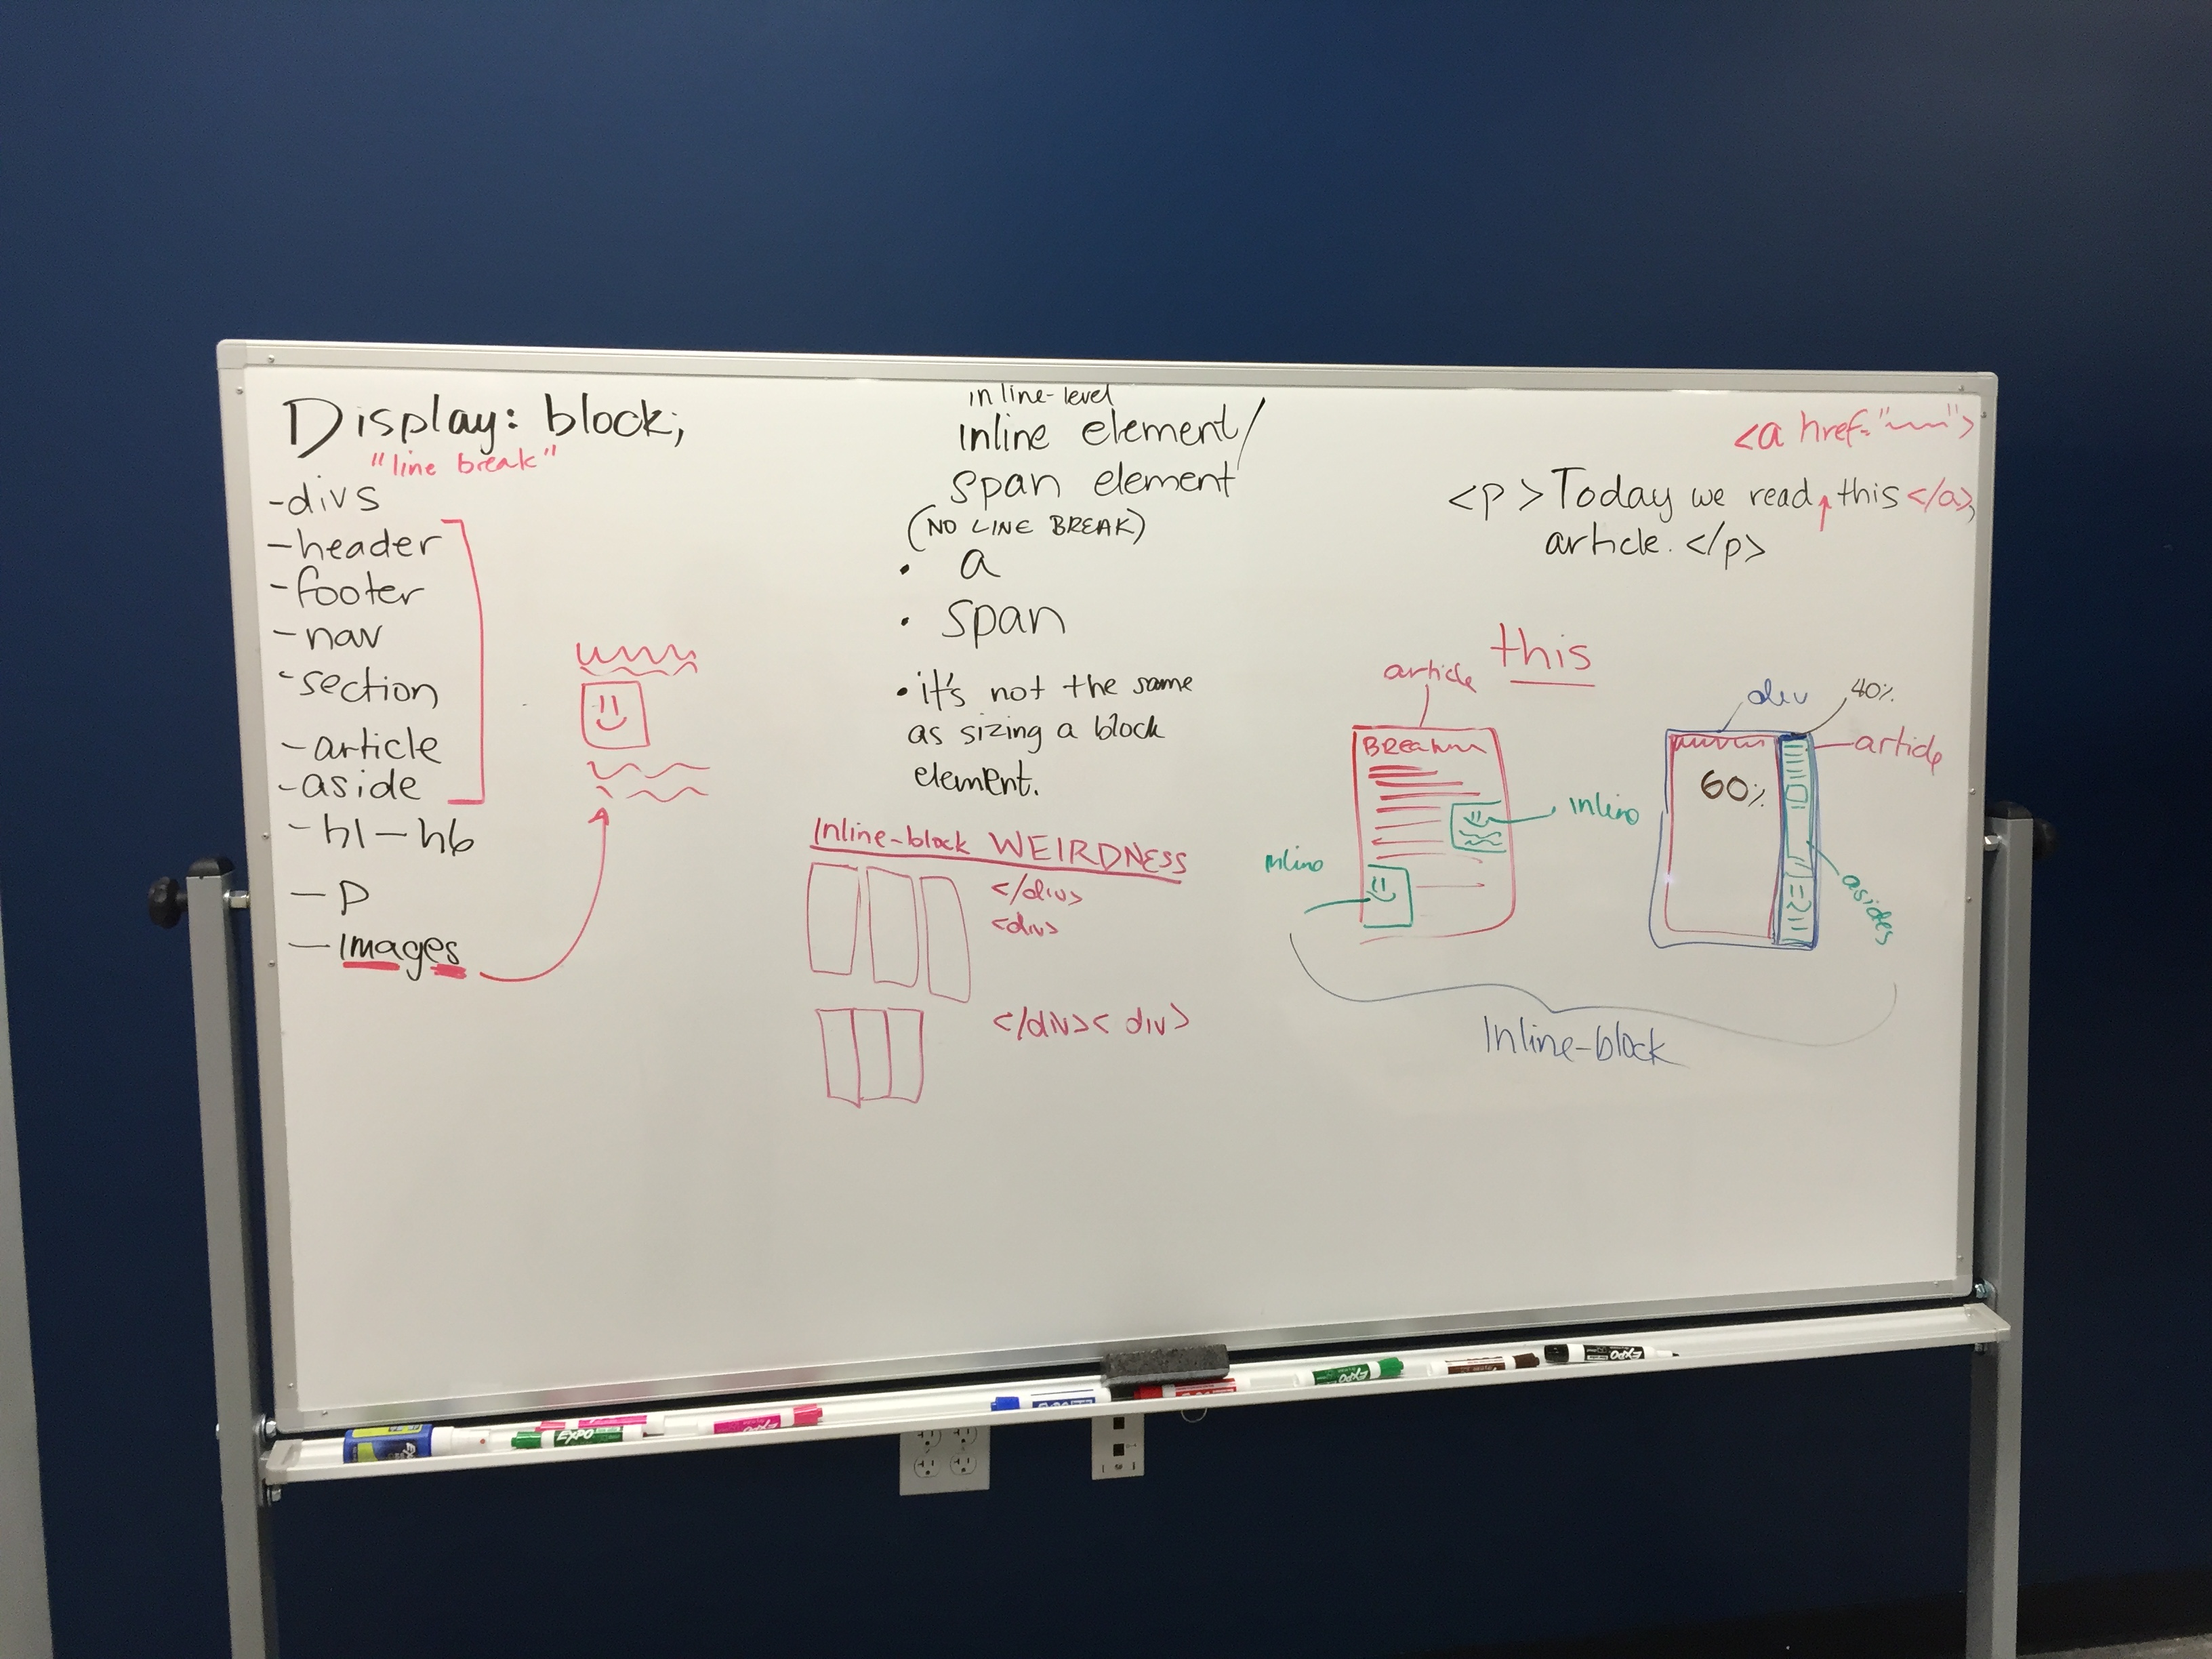 Display: block;
"line break"
-divs
-header
-footer
-nav
-section
-article
-aside
-h1-h6
-p
-images
inline-level
inline element/
span element
(NO LINE BREAK)
• a
• span
• it's not the same
as sizing a block
element.
Inline-block WEIRDNESS
</div>
<div>
</div>< div>
<a href="
">
<p>Today we read this </a>
article. </p>
this
article
inline
inline
div
40%
article
60%
asides
Inline-block
EXPO
EXPO
EXPO
EXPO
EXPO